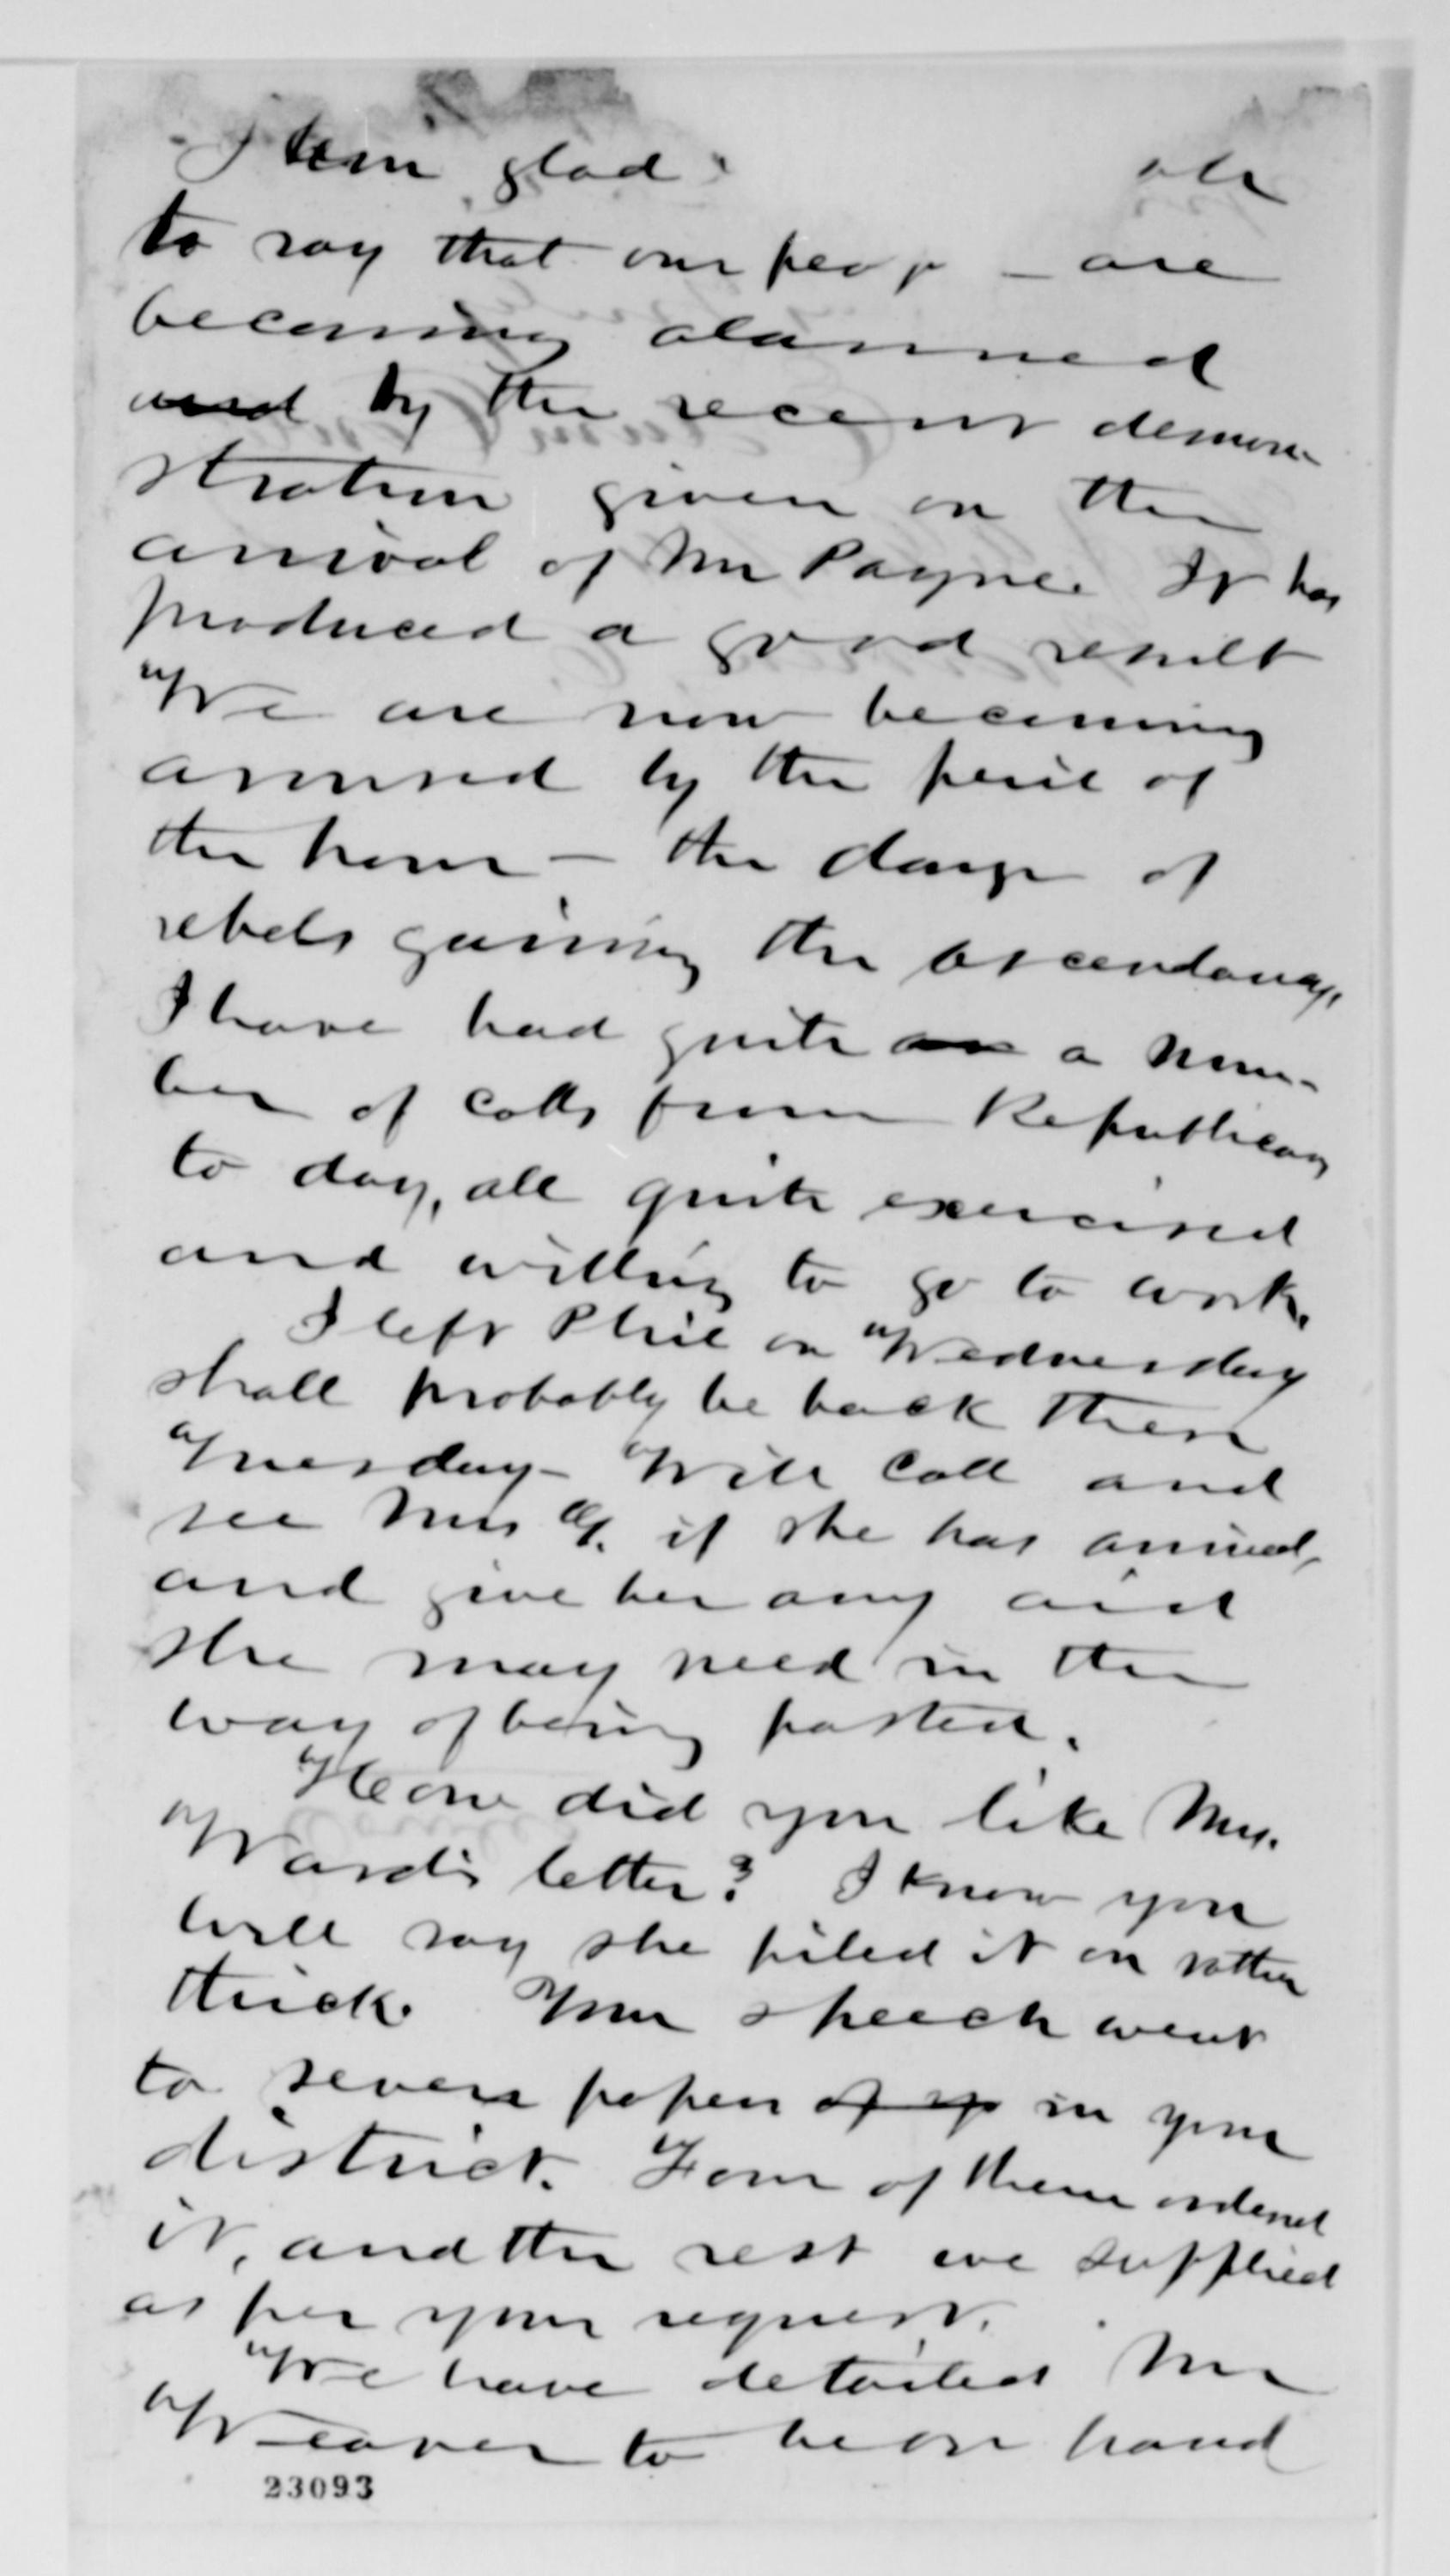 I am glad
to say that our peop – are
becoming alarmed
and by the recent demon-
stration given on the
arrival of Mr Payne. It has
produced a good result
We are now becoming
aroused by the peril of
the hour – the danger of
rebels gaining the ascendancy,
I have had quite an a num-
ber of calls from Republicans
to day, all quite exercised
and willing to go to work.
I left Phil on Wednesday
shall probably be back there
Tuesday – Will call and
see Mrs G. if she has arrived,
and give her any aid
she may need in the
way of being posted.
How did you like Mrs.
Ward's letter? I know you
will say she piled it on rather
thick. Your speech went
to seven papers of yo in your
district. Four of them ordered
it, and the rest we supplied
as per your request.
We have detailed Mr
Weaver to be on hand
23093